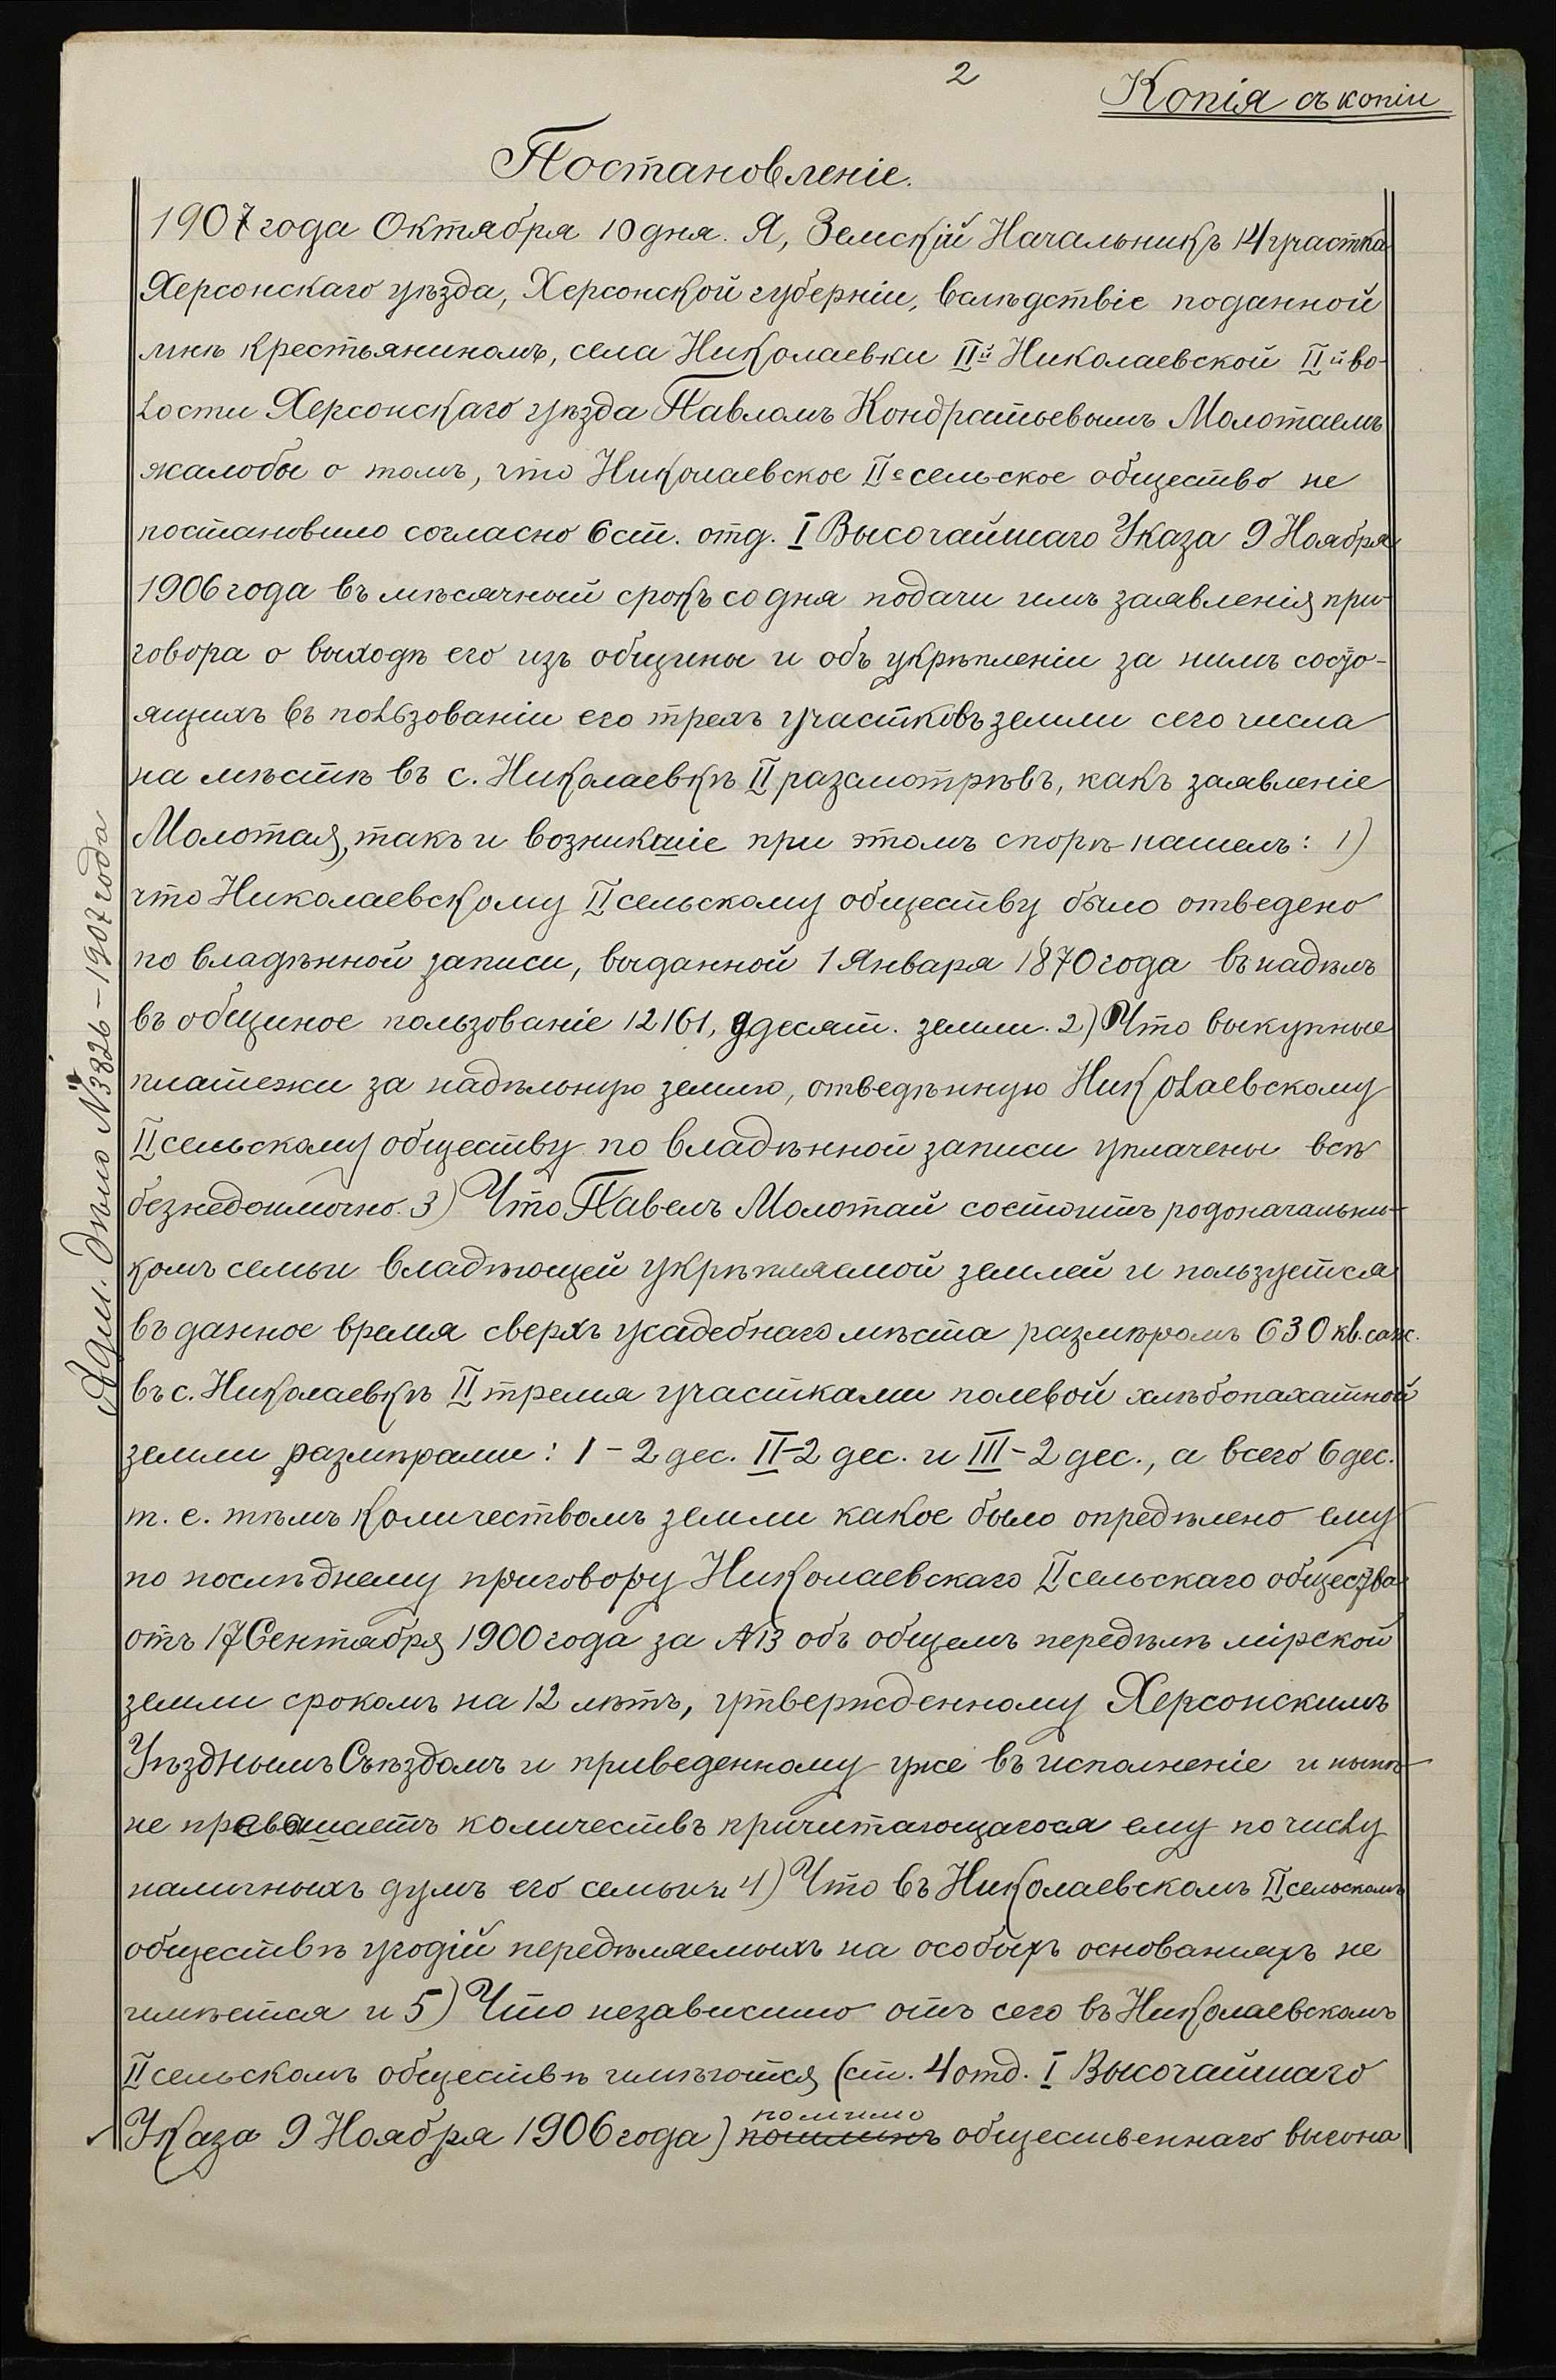 2
Копія съ копіи
Постановленіе.
1907 года Октября 10 дня. Я, Земскій Начальникъ 14 участка
Херсонскаго уѣзда, Херсонской губерніи, вслѣдствіе поданной
мнѣ крестьяниномъ, села Николаевки II й Николаевской II й во-
лости Херсонскаго уѣзда Павломъ Кондратьевымъ Молотаемъ
жалобы о томъ, что Николаевское II е сельское общество не
постановило согласно 6 ст. отд. I Высочайшаго Указа 9 Ноября
1906 года въ мѣсячный срокъ со дня подачи имъ заявленія при-
говора о выходѣ его изъ общины и объ укрѣпленіи за нимъ состо-
ящихъ въ пользованіи его трехъ участковъ земли сего числа
на мѣстѣ въ с. Николаевкѣ II разсмотрѣвъ, какъ заявленіе
Молотая, такъ и возникшіе при этомъ спорѣ нашелъ: 1)
что Николаевскому II сельскому обществу было отведено
по владѣнной записи, выданной 1 Января 1870 года въ надѣлъ
въ общиное пользованіе 12161,9 десят. земли. 2) Что выкупные
платежи за надѣльную землю, отведѣнную Николаевскому
II сельскому обществу по владѣнной записи уплачены всѣ
безнедоимочно. 3) Что Павелъ Молотай состоитъ родоначальни-
комъ семьи владѣющей укрѣпляемой землей и пользуется
въ данное время сверхъ усадебнаго мѣста размѣромъ 630 кв. саж.
въ с. Николаевкѣ II тремя участками полевой хлѣбопахатной
земли размѣрами: I - 2 дес. II - 2 дес. и III - 2 дес., а всего 6 дес.
т. е. тѣмъ количествомъ земли какое было опредѣлено ему
по послѣднему приговору Николаевскаго II сельскаго общества
отъ 17 Сентября 1900 года за №13 объ общемъ передѣлѣ мірской
земли срокомъ на 12 лѣтъ, утвержденному Херсонскимъ
Уѣзднымъ Съѣздомъ и приведенному уже въ исполненіе и нынѣ
не превышаетъ количествъ причитающагося ему по числу
наличныхъ душъ его семьи и 4) Что въ Николаевскомъ II сельскомъ
обществѣ угодій передѣляемыхъ на особыхъ основаніяхъ не
имѣется и 5) Что независимо отъ сего въ Николаевскомъ
II сельскомъ обществѣ имѣются (ст. 4 отд. I Высочайшаго
помимо
Указа 9 Ноября 1906 года) общественнаго выгона
Адм. дѣло № 3826 - 1907 года